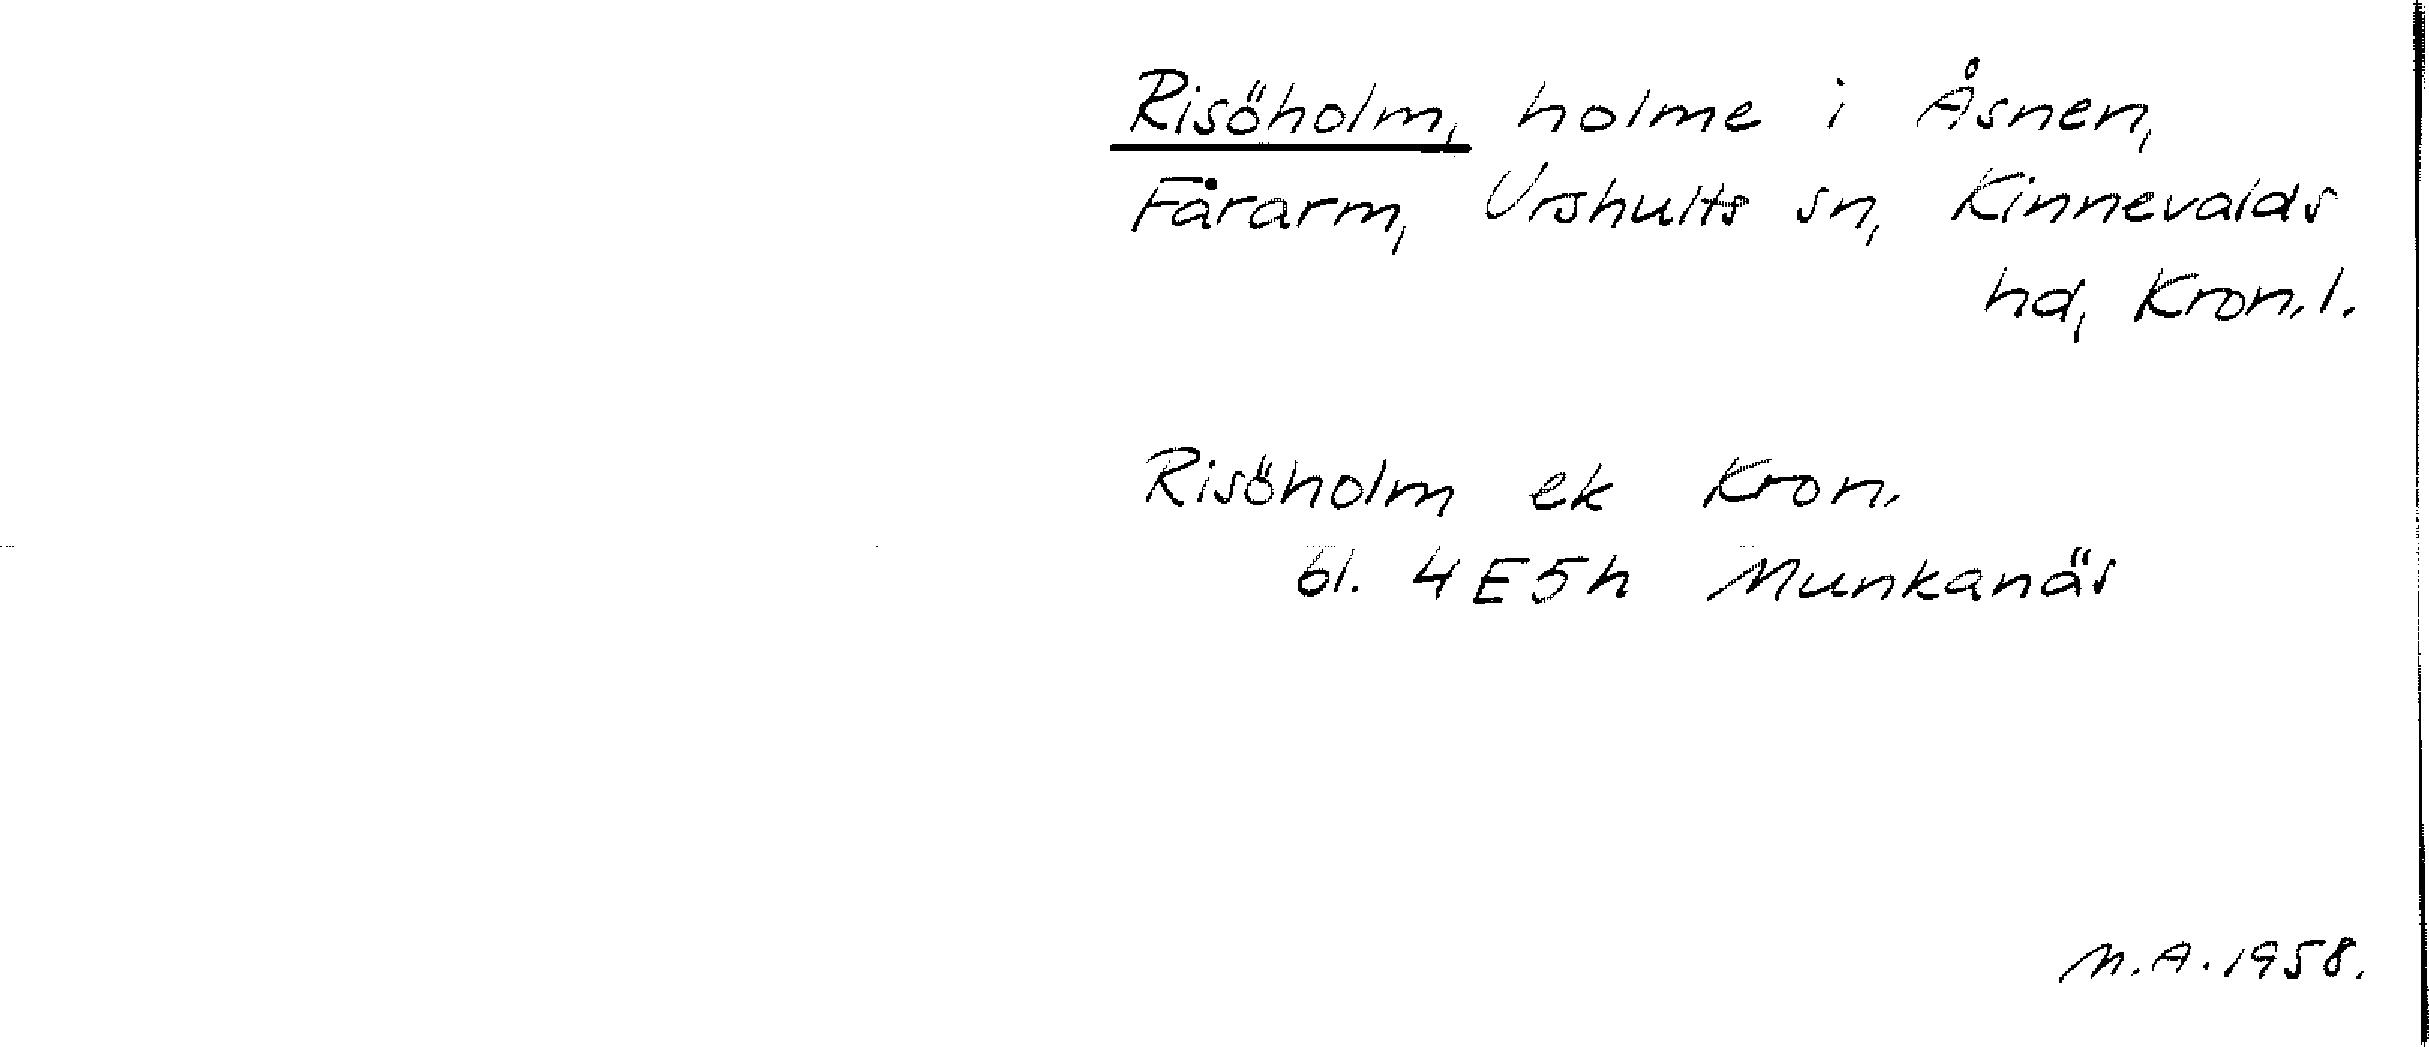 Risöholm, holme i Åsnen,
Fårarm, Urshults sn, Kinnevalds
hd, Kron.l.
Risöholm ek Kron.
bl. 4E5h Munkanäs
M.A.1958.